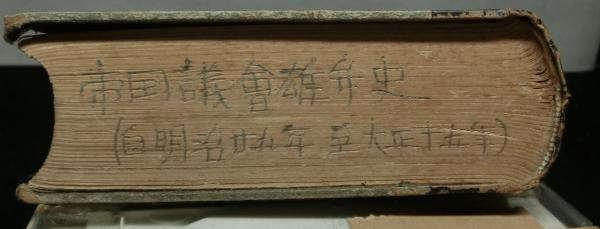 帝国議會雄弁史
(自明治廿五年 至大正十五年)